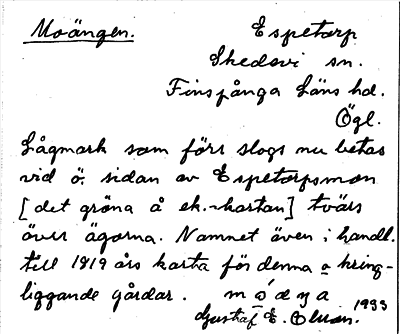 Moängen. Espetorp
Skedevi sn.
Finspånga läns hd.
Ögl.
Lågmark som förr slogs nu betas
vid ö. sidan av Espetorpsmon
[det gröna å ek.-kartan] tvärs
över ägorna. Namnet även i handl.
till 1819 års karta för denna o kring-
liggande gårdar.
1933
Gustaf E.